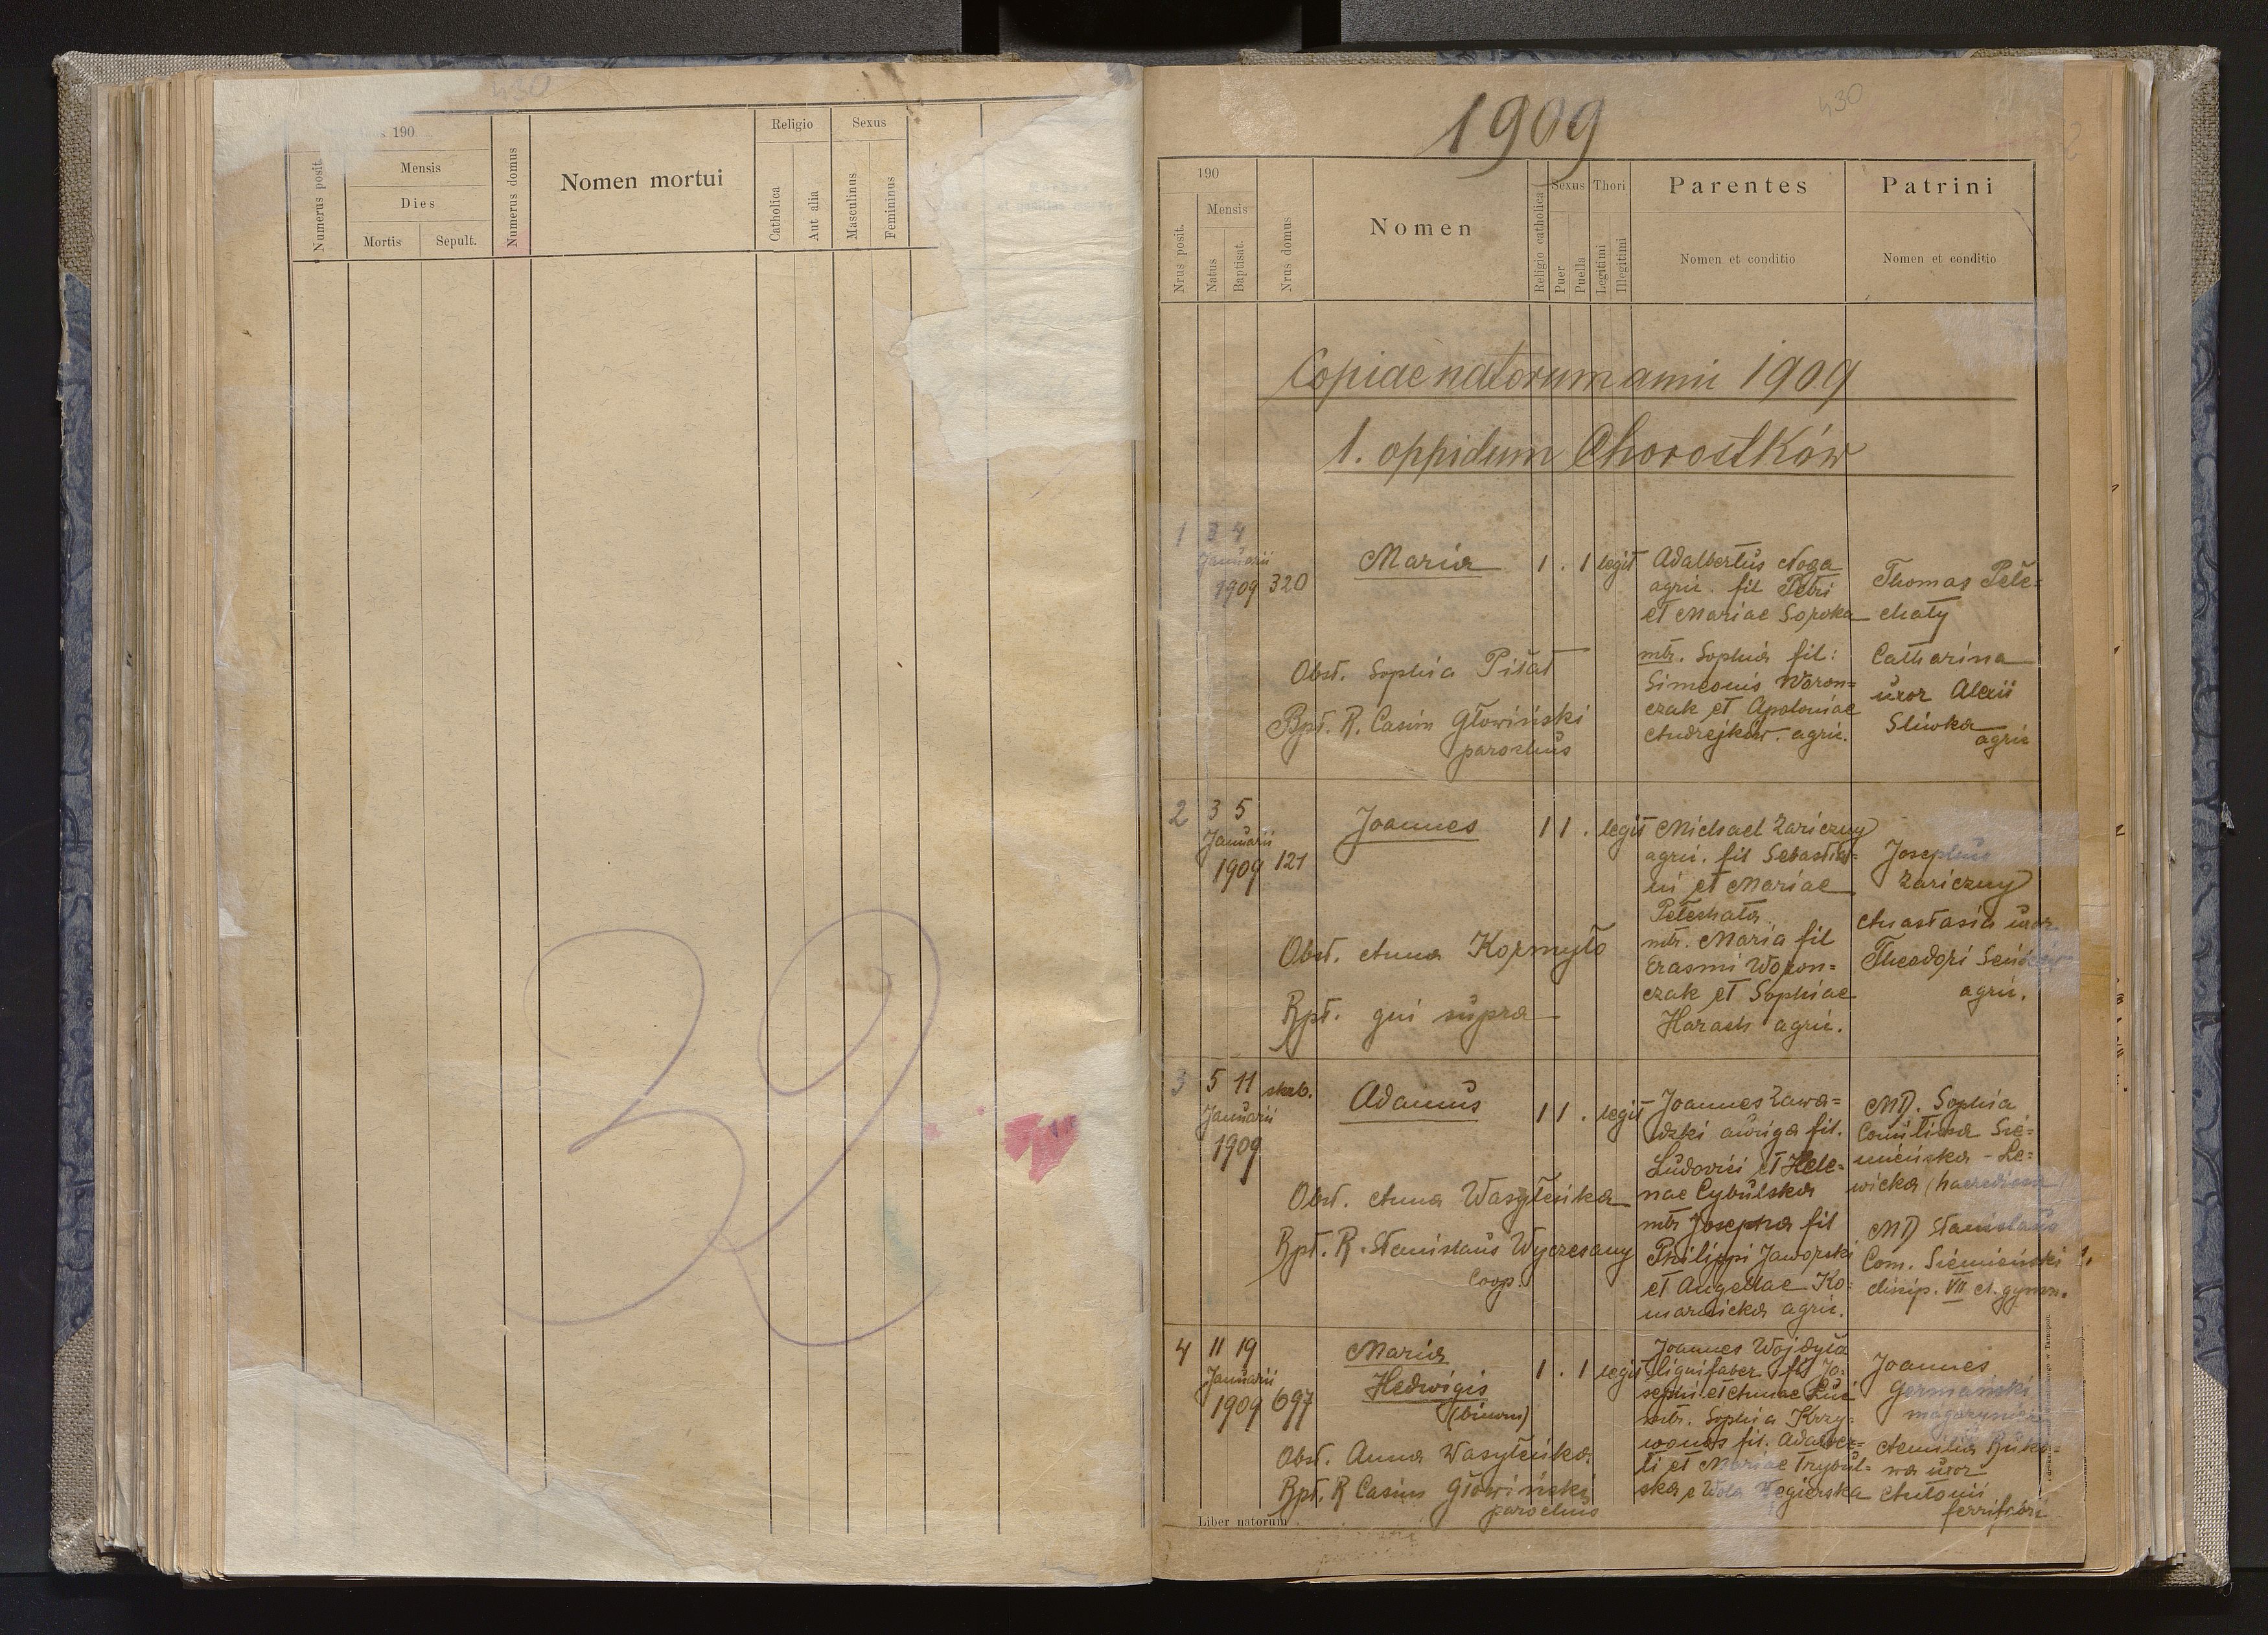 430
s 190
Numerus posit.
Mensis
Dies
Mortis
Sepult.
Numerus domus
Nomen mortui
Religio
Catholica
Aut alia
Sexus
Masculinus
Femininus
32
1909
430
190
Nrus posit.
Mensis
Natus
Baptisat.
Nrus domus
Nomen
Religio catholica
Sexus
Puer
Puella
Thori
Legitimi
Illegitimi
Parentes
Nomen et conditio
Patrini
Nomen et conditio
Copiae natorum anni 1909
1. oppidum Chorostków
1 3 4
Januarii
1909 320
Maria
1 . 1 legit
Adalbertus Noga
agric. fil Petri
et Mariae Soroka
mtr. Sophia fil:
Simeonis Woron=
czak et Apoloniae
Andrejków. agric.
Thomas Pełe=
chaty
Catharina
uxor Alexii
Śliwka
agric
Obst. Sophia Piłat
Bpt. R. Casim Głowiński
parochus
2 3 5
Januarii
1909 121
Joannes
1 1 . legit
Michael Zariczny
agric. fil Sebastia=
ni et Mariae
Pełechata
mtr. Maria fil
Erasmi Woron=
czak et Sophiae
Harach agric.
Josephus
Zariczny
Anastasia uxor
Theodori
agric.
Obst. Anna Kormyło
Bpt. qui supra
3 5 11 skrb.
Januarii
1909
Adamus
1 1 . legit
Joannes Zawa=
dzki auriga fil.
Ludovici et Hele=
nae Cybulska
mtr Josepha fil
Philippi Jaworski
et Angellae Ko=
marnicka agric.
MD. Sophia
Comitissa Sie=
mieńska - Le=
wicka (haeredissa)
MD Stanislaus
Com. Siemieński
discip. VII cl. gymn.
Obst. Anna Wasyłeńka
Bpt. R. Stanislaus Wyczesany
Coop.
4 11 19
Januarii
1909 697
Maria
Hedwigis
(binom)
1 . 1 legit
Joannes Wojdyła
lignifaber fil Jo=
sephi et Annae
mtr. Sophia Krzy=
wonos fil. Adalber=
ti et Mariae Trybul=
ska e Wola Węgierska
Joannes
Germański
Aemilia Ruko=
wa uxor
Antonii
ferrifabri
Obst. Anna Wasyłeńka
Bpt. R Casim Głowiński
parochus
Liber natorum